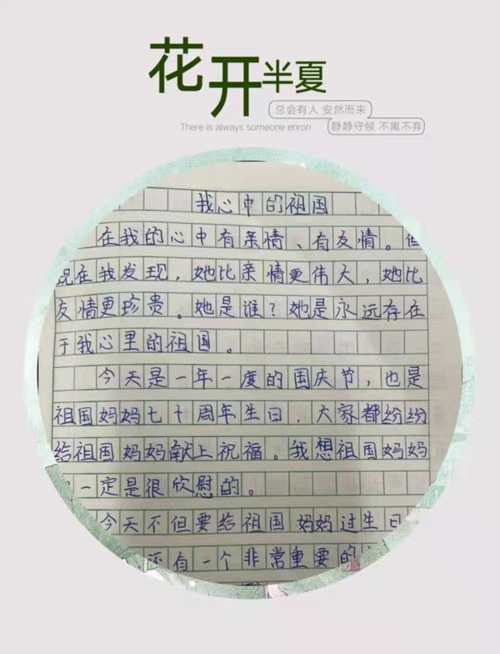 花开半夏
总会有人 安然而来
There is always someone enron
静静守候 不离不弃
我心中的祖国
在我的心中有亲情、有友情。但
现在我发现，她比亲情更伟大，她比
友情更珍贵。她是谁？她是永远存在
于我心里的祖国。
今天是一年一度的国庆节，也是
祖国妈妈七十周年生日，大家都纷纷
给祖国妈妈献上祝福。我想祖国妈妈
一定是很欣慰的。
今天不但要给祖国妈妈过生日
还有一个非常重要的